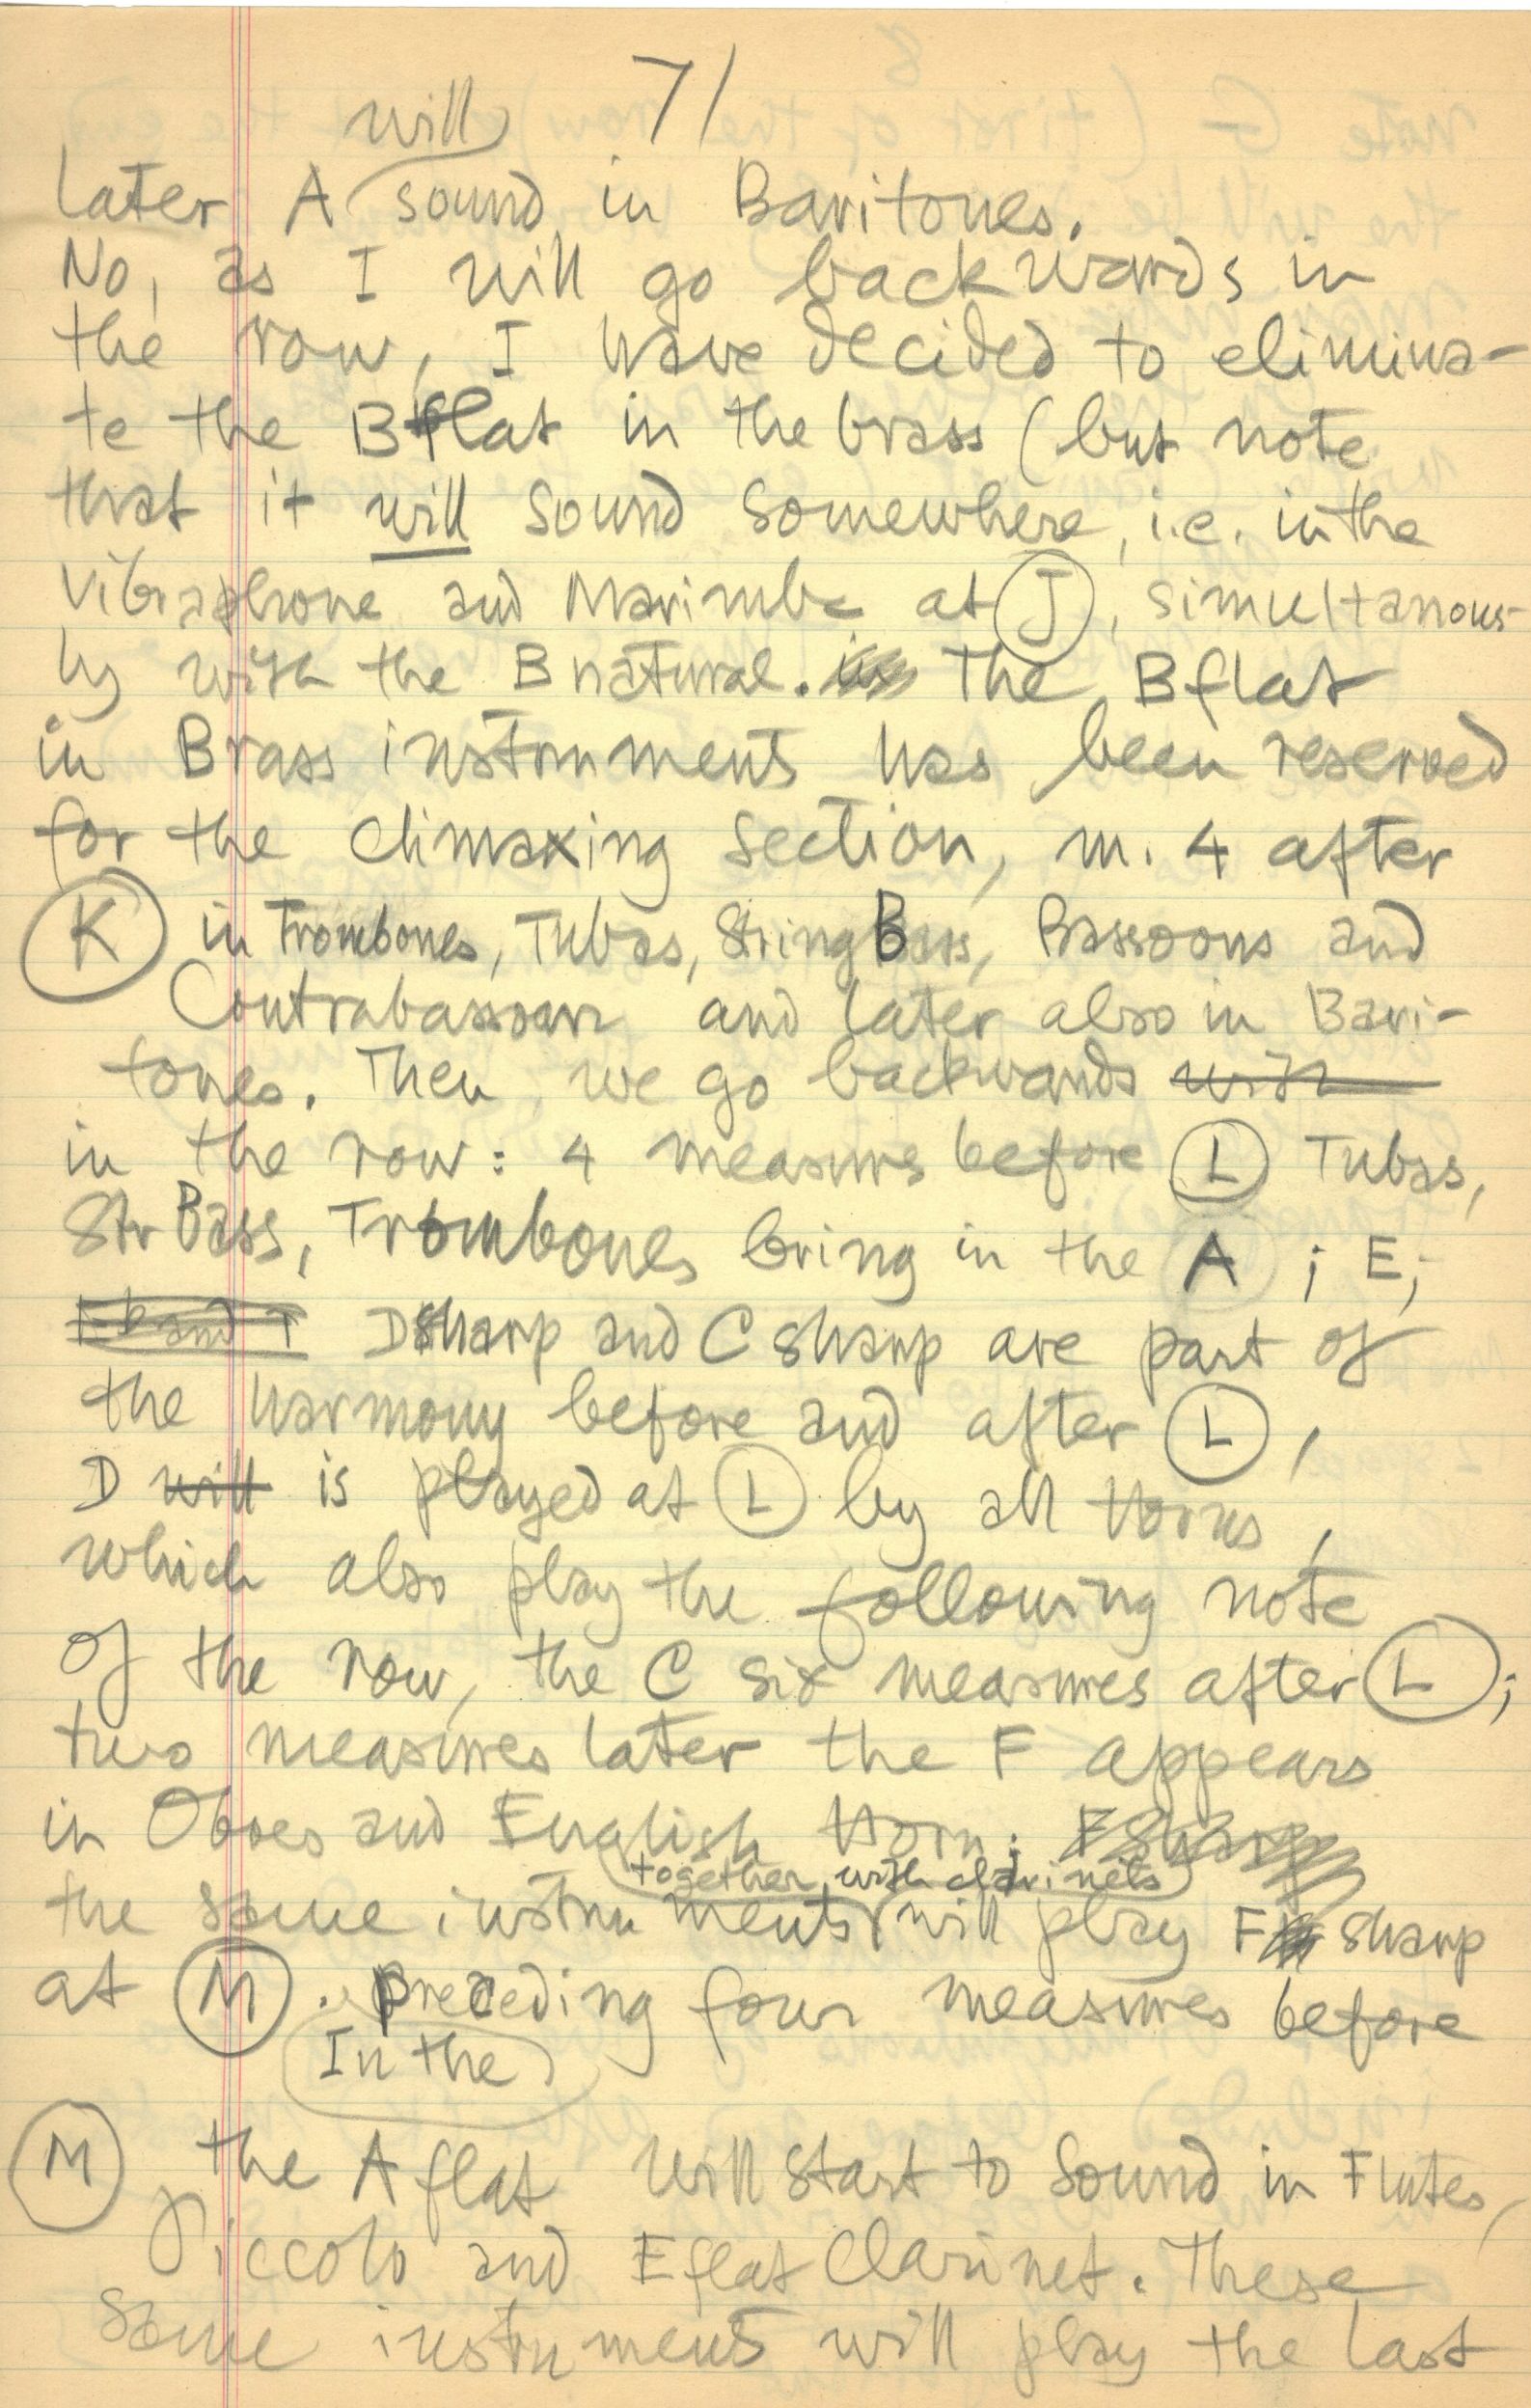 7/
will
later A sound in Baritones.
No, as I will go backwards in
the row, I have decided to elimina-
te the B flat in the brass (but note
that it will sound somewhere, i.e. in the
Vibraphone and Marimba at J, simultanous-
ly with the B natural. The B flat
in Brass instruments has been reserved
for the climaxing section, m. 4 after
K in Trombones, Tubas, String Bass, Bassoons and
Contrabassoon and later also in Bari-
tones. Then we go backwards with
in the row: 4 measures before L Tubas,
Str Bass, Trombones bring in the A ; E;
D sharp and C sharp are part of
the harmony before and after L,
D will is played at L by all Horns,
which also play the following note
of the row, the C six measures after L;
two measures later the F appears
in Oboes and English Horn; F sharp
together with clarinets
the same instruments will play F sharp
at M. preceding four measures before
In the
M the A flat will start to sound in Flutes,
Piccolo and E flat Clarinet. These
same instruments will play the last